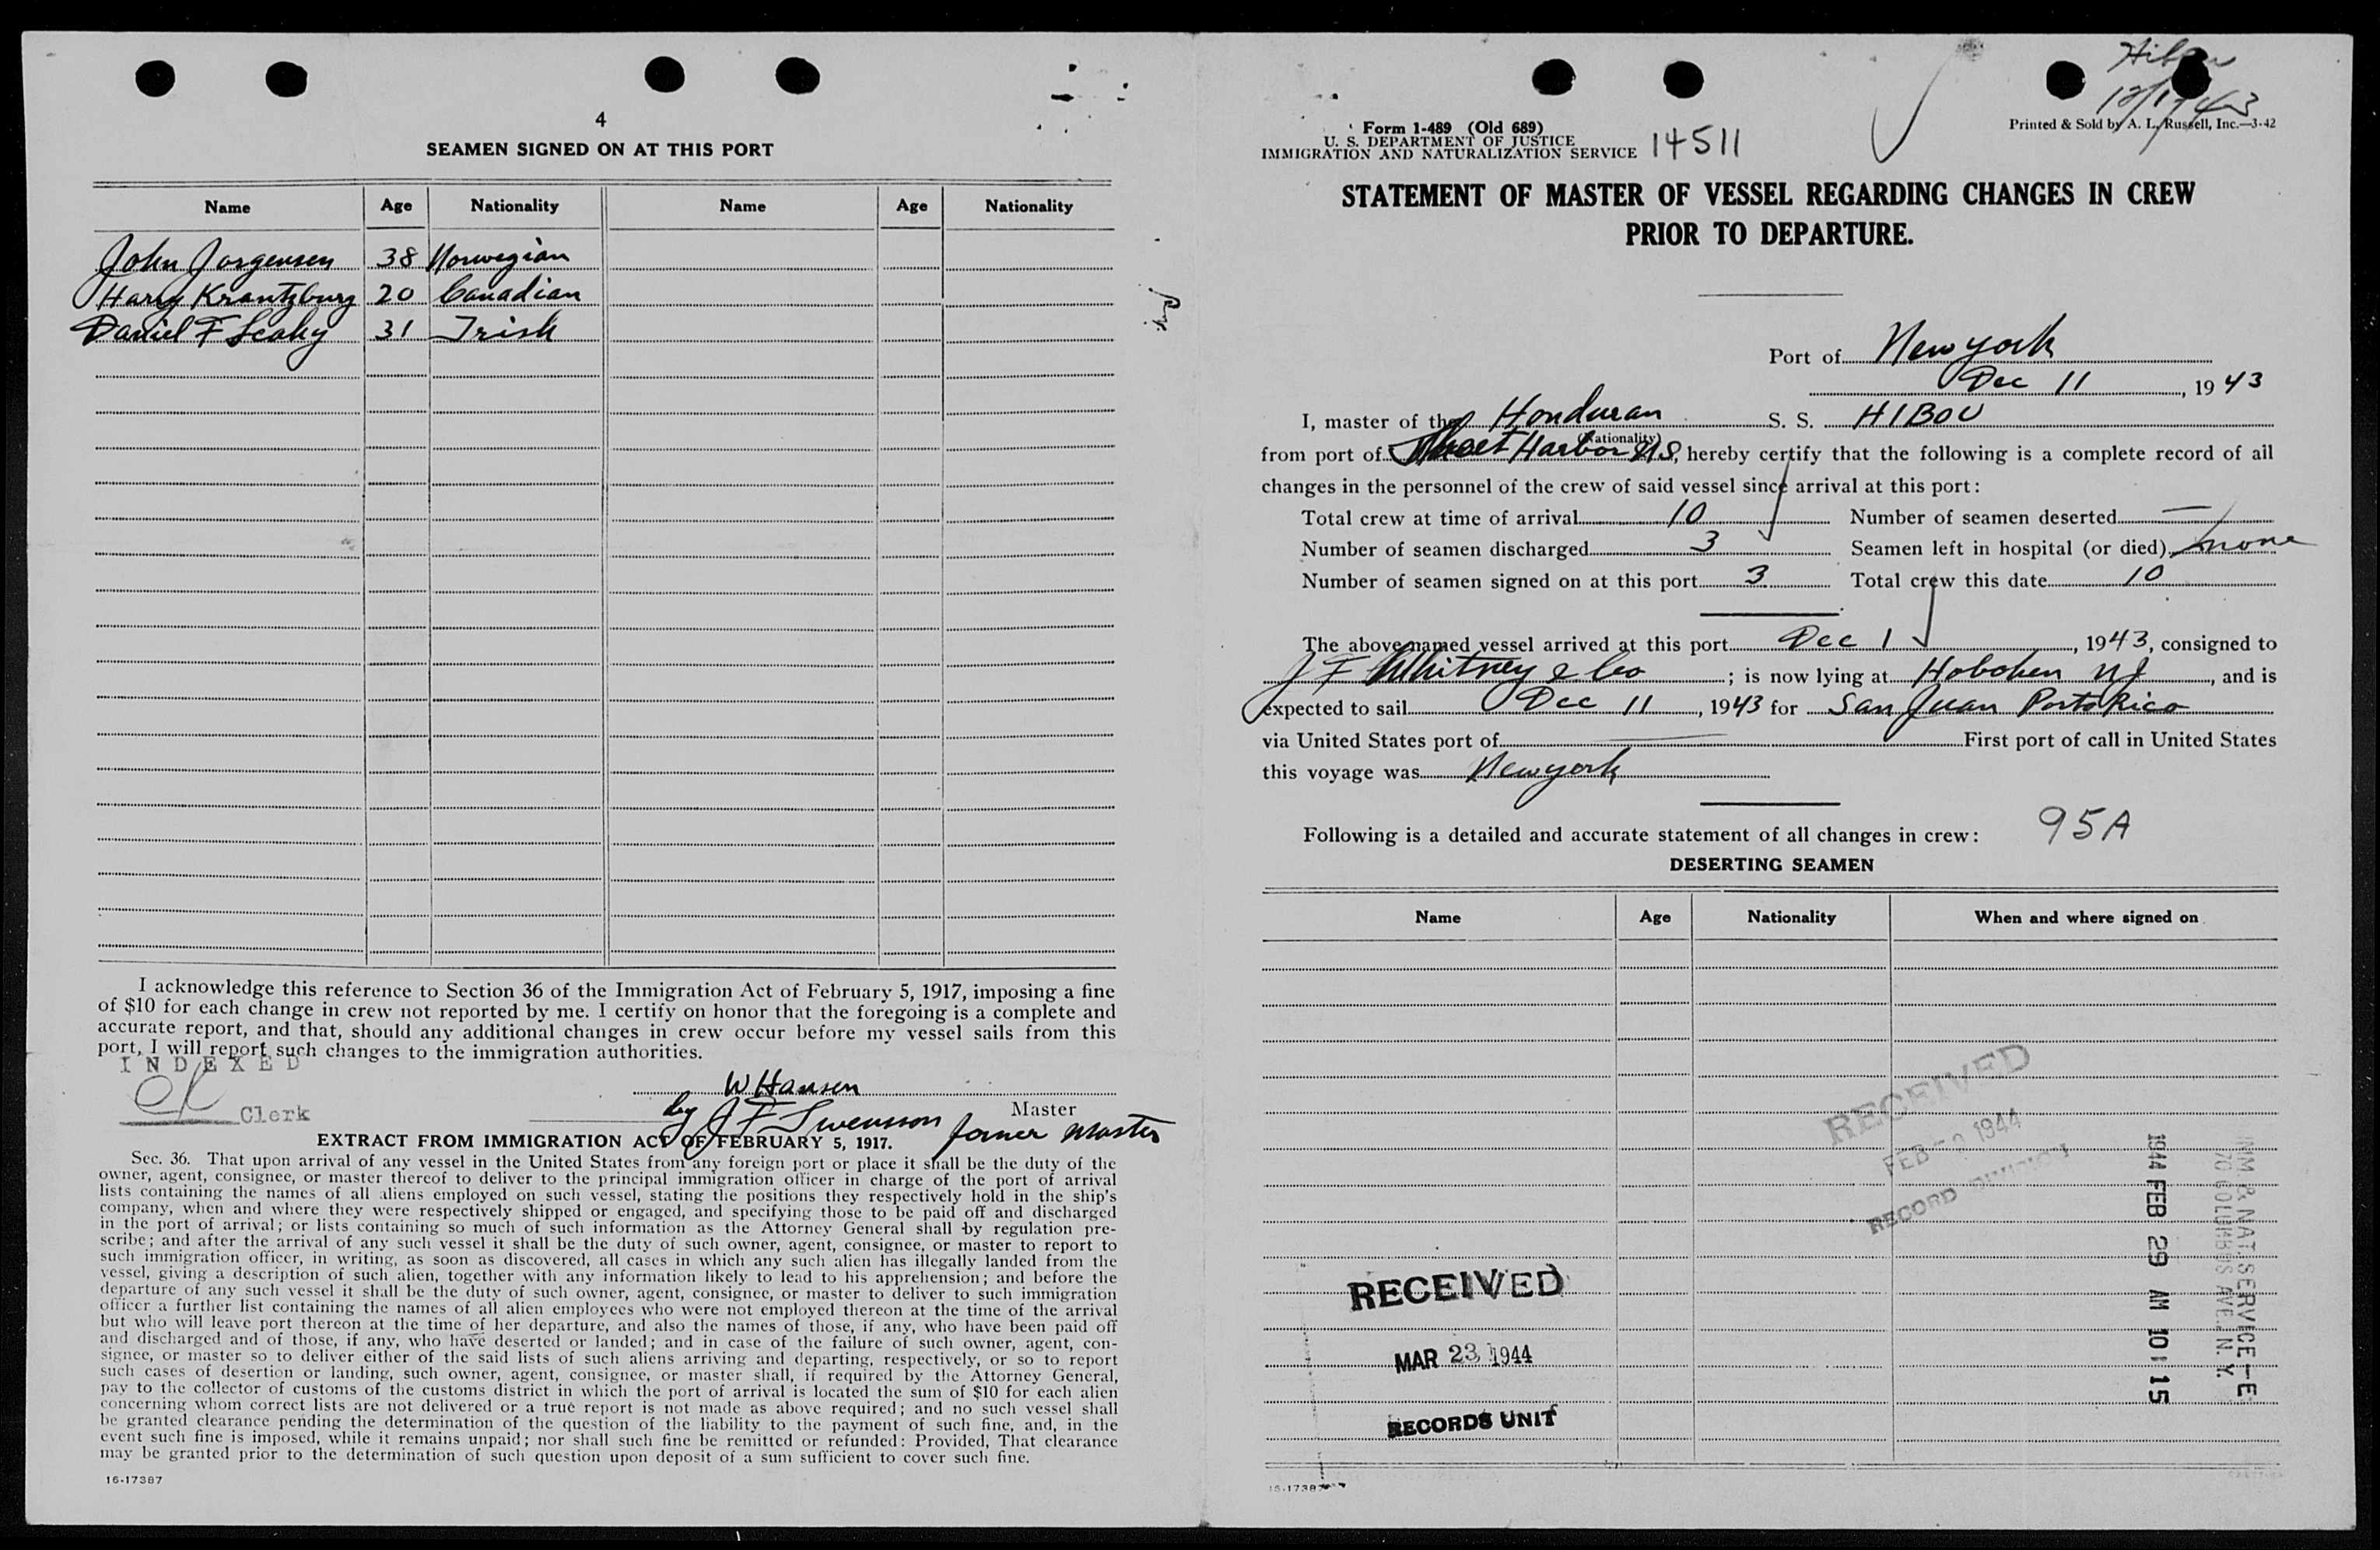 4
SEAMEN SIGNED ON AT THIS PORT
Name Age Nationality Name Age Nationality
John Jorgensen 38 Norwegian
Harry Krantzburg 20 Canadian
Daniel F Leahy 31 Irish
I acknowledge this reference to Section 36 of the Immigration Act of February 5, 1917, imposing a fine
of $10 for each change in crew not reported by me. I certify on honor that the foregoing is a complete and
accurate report, and that, should any additional changes in crew occur before my vessel sails from this
port, I will report such changes to the immigration authorities.
INDEXED
Clerk
W Hansen
Master
by J F Swensson former master
EXTRACT FROM IMMIGRATION ACT OF FEBRUARY 5, 1917.
Sec. 36. That upon arrival of any vessel in the United States from any foreign port or place it shall be the duty of the
owner, agent, consignee, or master thereof to deliver to the principal immigration officer in charge of the port of arrival
lists containing the names of all aliens employed on such vessel, stating the positions they respectively hold in the ship's
company, when and where they were respectively shipped or engaged, and specifying those to be paid off and discharged
in the port of arrival; or lists containing so much of such information as the Attorney General shall by regulation pre-
scribe; and after the arrival of any such vessel it shall be the duty of such owner, agent, consignee, or master to report to
such immigration officer, in writing, as soon as discovered, all cases in which any such alien has illegally landed from the
vessel, giving a description of such alien, together with any information likely to lead to his apprehension; and before the
departure of any such vessel it shall be the duty of such owner, agent, consignee, or master to deliver to such immigration
officer a further list containing the names of all alien employees who were not employed thereon at the time of the arrival
but who will leave port thereon at the time of her departure, and also the names of those, if any, who have been paid off
and discharged and of those, if any, who have deserted or landed; and in case of the failure of such owner, agent, con-
signee, or master so to deliver either of the said lists of such aliens arriving and departing, respectively, or so to report
such cases of desertion or landing, such owner, agent, consignee, or master shall, if required by the Attorney General,
pay to the collector of customs of the customs district in which the port of arrival is located the sum of $10 for each alien
concerning whom correct lists are not delivered or a true report is not made as above required; and no such vessel shall
be granted clearance pending the determination of the question of the liability to the payment of such fine, and, in the
event such fine is imposed, while it remains unpaid; nor shall such fine be remitted or refunded: Provided, That clearance
may be granted prior to the determination of such question upon deposit of a sum sufficient to cover such fine.
16-17387
Form 1-489 (Old 689)
U. S. DEPARTMENT OF JUSTICE
IMMIGRATION AND NATURALIZATION SERVICE 14511
Printed & Sold by A. L. Russell, Inc.—3-42
STATEMENT OF MASTER OF VESSEL REGARDING CHANGES IN CREW
PRIOR TO DEPARTURE.
Port of New york
Dec 11, 1943
I, master of the Honduran S. S. HIBOU
(Nationality)
from port of Sheet Harbor NS, hereby certify that the following is a complete record of all
changes in the personnel of the crew of said vessel since arrival at this port:
Total crew at time of arrival 10 Number of seamen deserted —
Number of seamen discharged 3 Seamen left in hospital (or died) none
Number of seamen signed on at this port 3 Total crew this date 10
The above-named vessel arrived at this port Dec 1, 1943, consigned to
J F Whitney & Co; is now lying at Hoboken NJ, and is
expected to sail Dec 11, 1943 for San Juan Porto Rico
via United States port of — First port of call in United States
this voyage was New york
Following is a detailed and accurate statement of all changes in crew: 95A
DESERTING SEAMEN
Name Age Nationality When and where signed on
RECEIVED
FEB 1944
RECORD DIVISION
IMM & NAT. SERVICE-E
70 COLUMBUS AVE. N. Y.
1944 FEB 29 AM 10:15
RECEIVED
MAR 23 1944
RECORDS UNIT